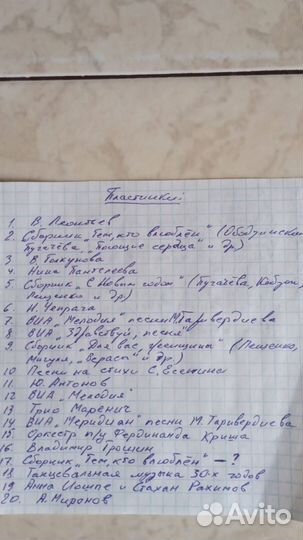 Пластинки:
1. В. Леонтьев
2. Сборник "Тем, кто влюблён" (Ободзинский
Пугачёва "Поющие сердца" и др)
3 В. Толкунова
4. Нина Пантелеева
5. Сборник "С Новым годом" (Пугачёва, Кобзон,
Лещенко и др)
6. Н. Чепрага
7 ВИА "Мелодия" песни М. Таривердиева
8 ВИА "Здравствуй, песня"
9. Сборник "Для вас, женщины" (Лещенко,
Мигуля, "Верасы" и др.)
10 Песни на стихи С. Есенина
11. Ю. Антонов
12 ВИА "Мелодия"
13 Трио Маренич
14 ВИА "Меридиан" песни М. Таривердиева
15 Оркестр п/у Фердинанда Криша
16 Владимир Трошин
17. Сборник "Тем, кто влюблён" - ?
18 Танцевальная музыка 30-х годов
19 Анна Иошпе и Стахан Рахимов
20. А. Миронов
Avito